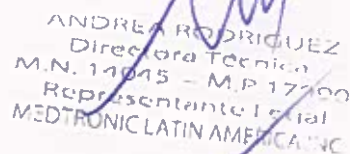 ANDREA RODRIGUEZ
Directora Técnica
M.N. 14045 - M.P. 17
Representante Legal
MEDTRONIC LATIN AMERICA INC